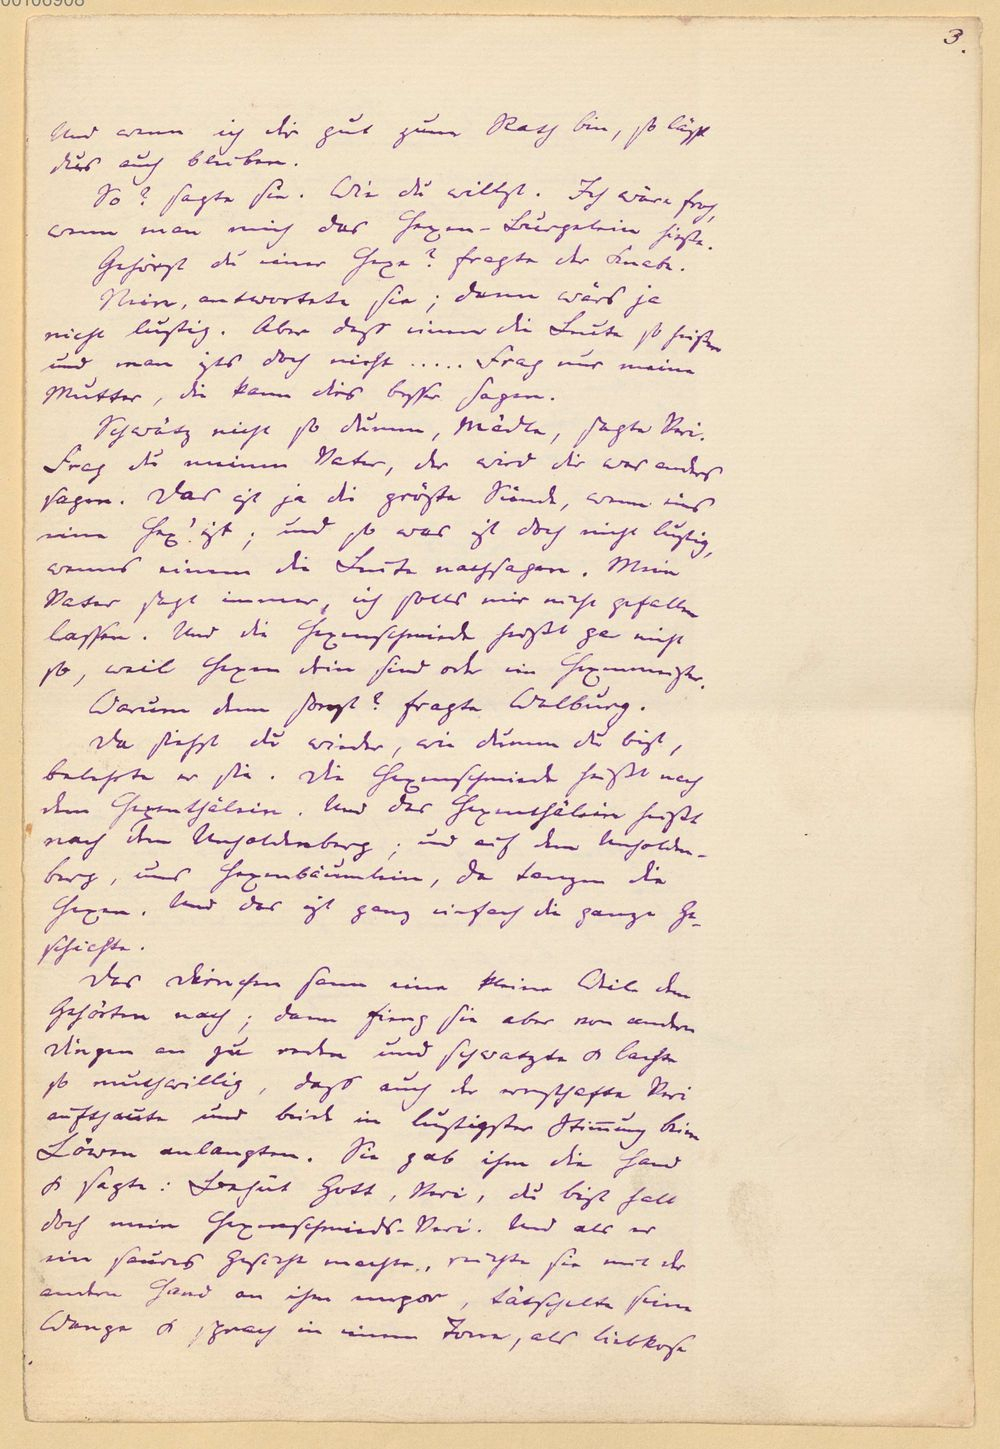 00106908
3.
Und wenn ich dir gut zum Rath bin, so lässt
dus auch bleiben.
So? sagte sie. Wie du willst. Ich wäre froh,
wenn man mich das Hexen-Burgelein hieße.
Gehörst du einer Hexe? fragte der Knabe.
Nein, antwortete sie; dann wärs ja
nicht lustig. Aber dass einen die Leute so heißen
und man ists doch nicht ..... Frag nur meine
Mutter, die kann dirs besser sagen.
Schwätz nicht so dumm, Mädle, sagte Veri.
Frag du meinen Vater, der wird dir was anders
sagen. Das ist ja die größte Sünde, wenn eins
eine Hex' ist; und so was ist doch nicht lustig,
wenns einem die Leute nachsagen. Mein
Vater sagt immer, ich solls mir nicht gefallen
lassen. Und die Hexenschmiede heißt gar nicht
so, weil Hexen drin sind oder ein Hexenmeister.
Warum denn sonst? fragte Walburg.
Da siehst du wieder, wie dumm du bist,
belehrte er sie. Die Hexenschmiede heißt nach
dem Hexenthälein. Und das Hexenthälein heißt
nach dem Unholdenberg; und auf dem Unholden-
berg, ums Hexenbäumlein, da tanzen die
Hexen. Und das ist ganz einfach die ganze Ge-
schichte.
Das Dirnchen sann eine kleine Weile dem
Gehörten nach; dann fieng sie aber von andern
Dingen an zu reden und schwatzte & lachte
so muthwillig, dass auch der ernsthafte Veri
aufthaute und beide in lustigster Stimmung beim
Löwen anlangten. Sie gab ihm die Hand
& sagte: Behüt Gott, Veri, du bist halt
doch mein Hexenschmieds-Veri. Und als er
ein saures Gesicht machte, reichte sie mit der
andern Hand an ihm empor, tätschelte seine
Wange & sprach in einem Tone, als liebkose